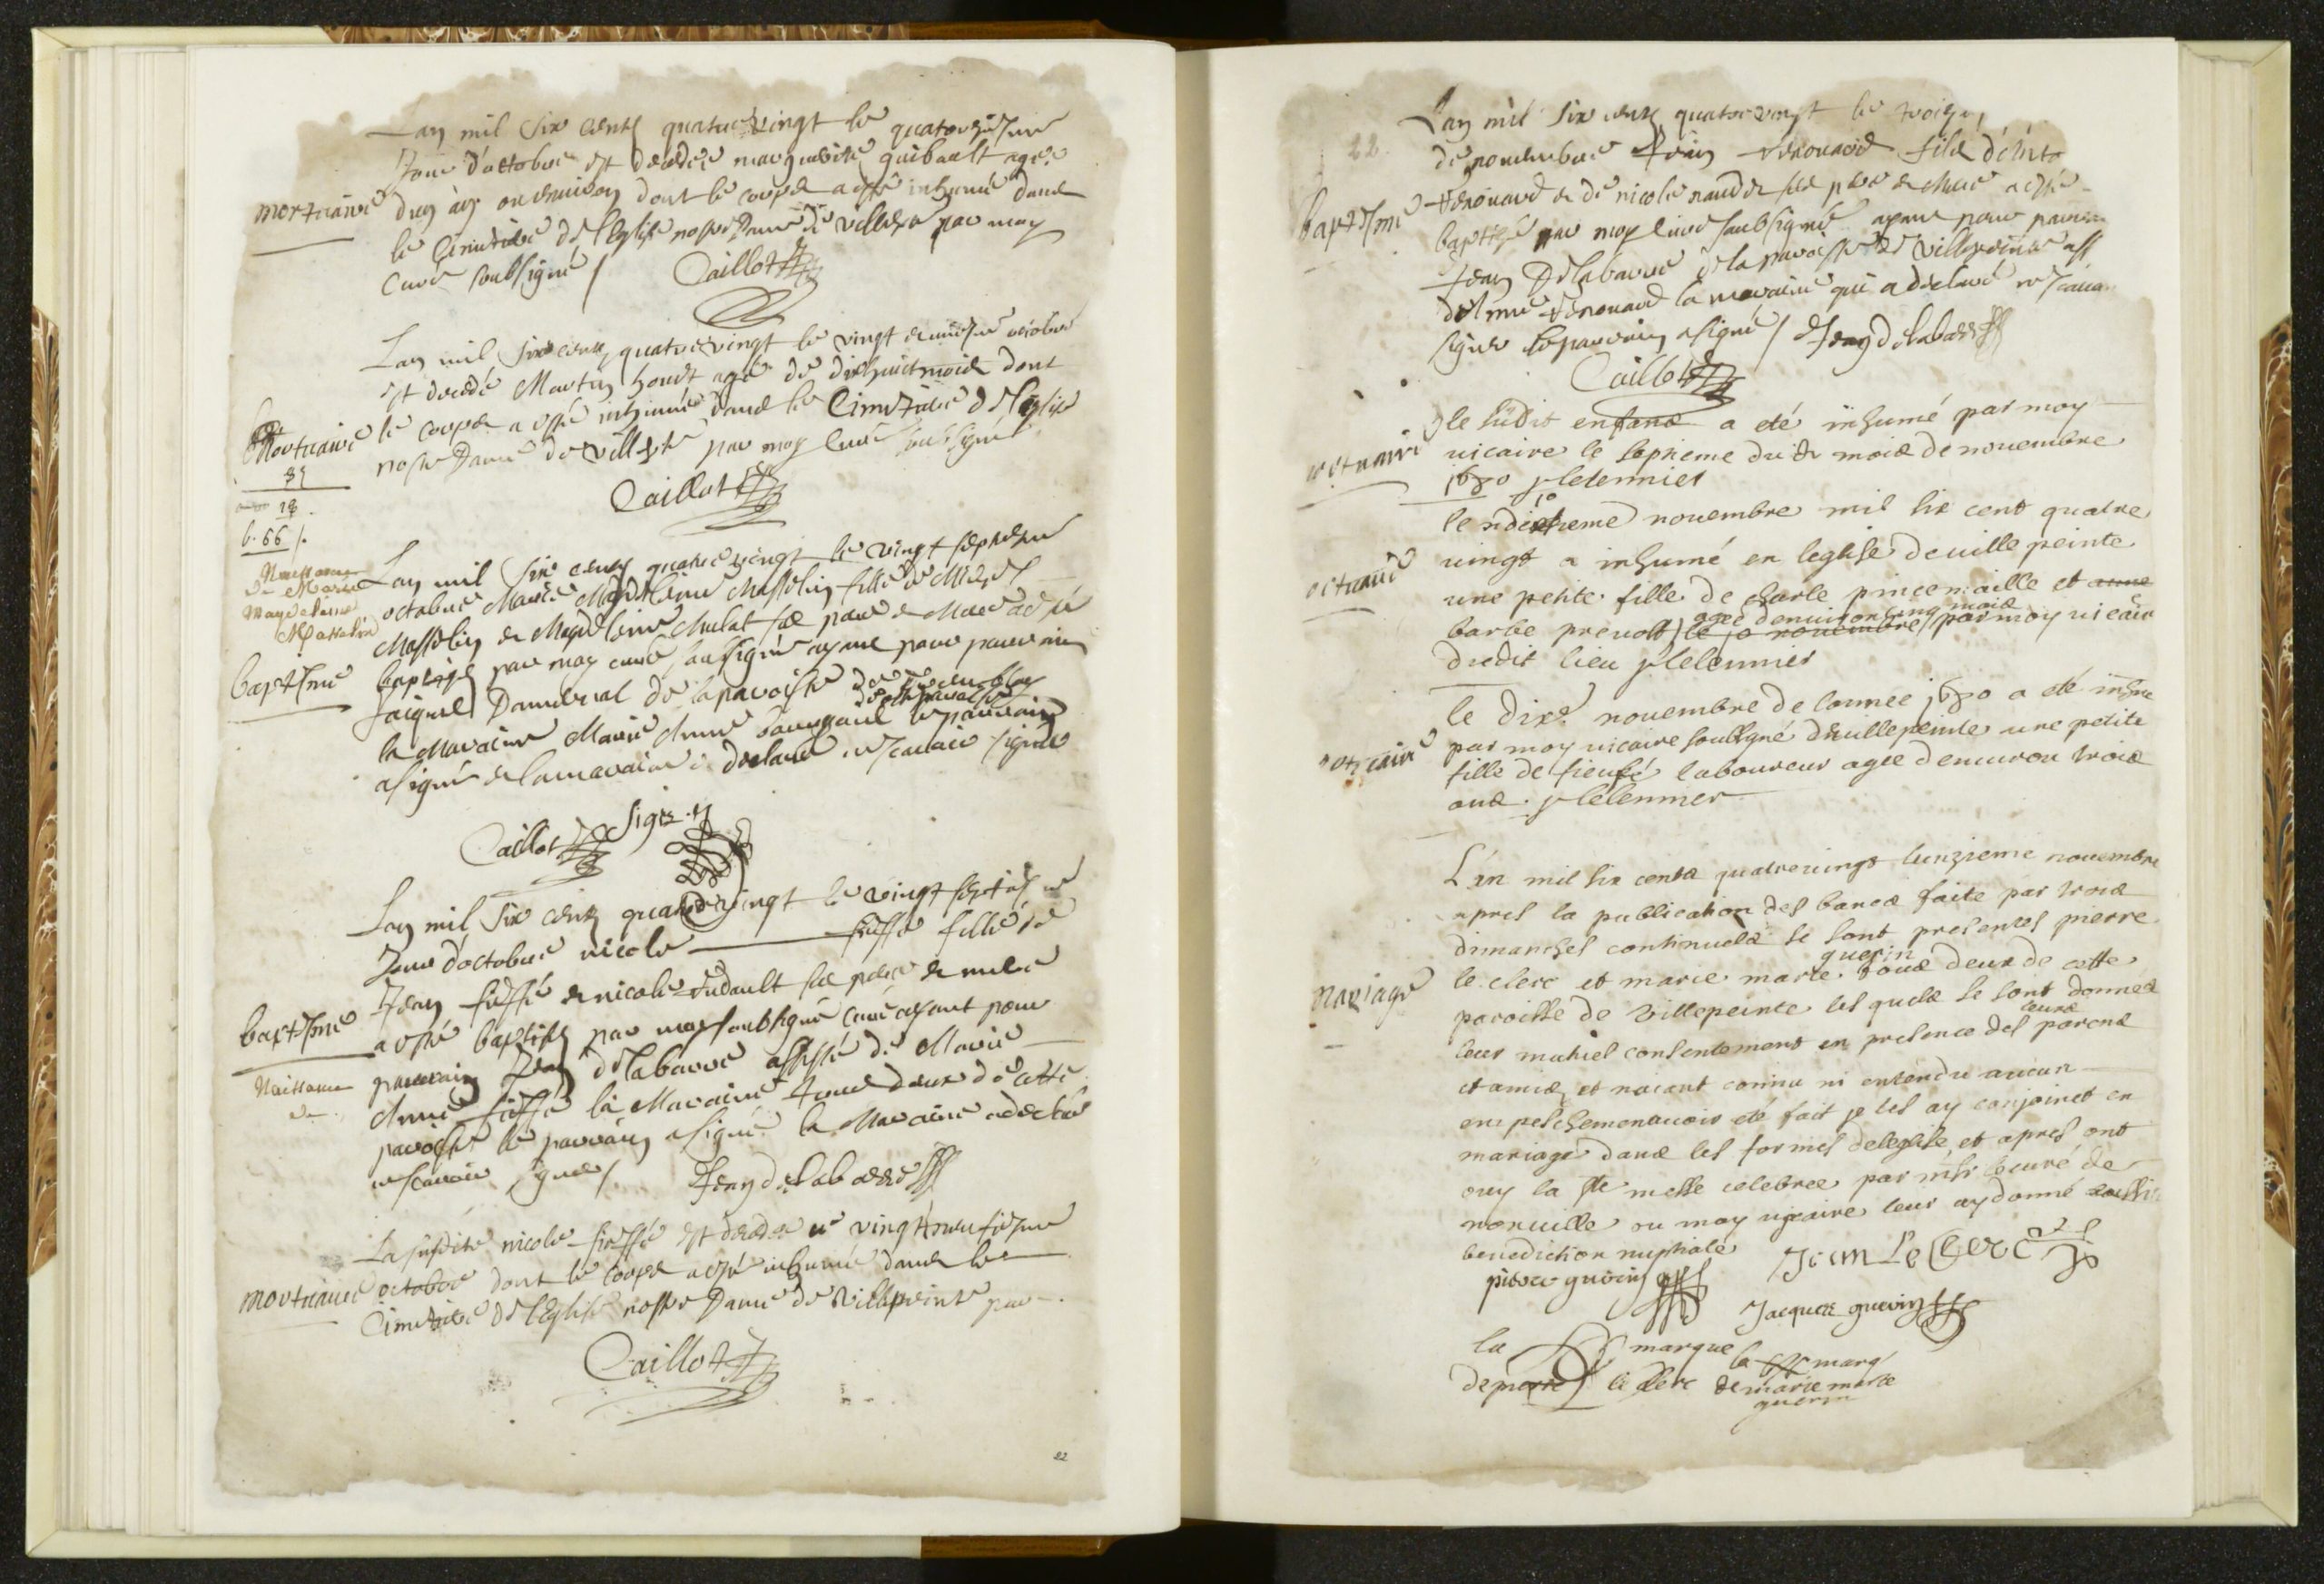 Lan mil six centz quatrevingt le quatorziesme
Jour d'octobre est decedée marguerite guibault agée
mortuaire
d'un an ou environ dont le corps a esté inhumé dans
le Cimetiere de l'Eglise nostre Dame de villepte par moy
Curé soubsigné / Caillot
Lan mil six centz quatrevingt le vingt deuxiesme octobre
est decedé Martin houet agé de dixhuict mois dont
Mortuaire
le corps a esté inhumé dans le Cimetiere de l'Eglise
nostre Dame de villepte par moy Curé soubsigné
Caillot
18
b. 66 /.
Naissance
de Marie
Magdelaine
Masselin
Lan mil six centz quatrevingt le vingt septiesme
octobre Marie Magdeleine Masselin fille de Michel
Masselin et de Magdeleine Mulat ses pere et Mere a esté
baptesme
baptisée par moy curé soubsigné ayant pour parrain
Jacques Danneval de la paroisse de
de cette paroisse
la Maraine Marie Anne le parrain
a signé et la maraine a declaré ne scavoir signer
Caillot
Lan mil six centz quatrevingt le vingt septiesme
Jour d'octobre nicole fieffé fille de
Jean fieffé et nicole Tudault ses pere et mere
baptesme
a esté baptisée par moy soubsigné Curé ayant pour
Naissance
de
parrain Jean delabarre assisté de Marie
Anne fieffé la Maraine tous deux de cette
paroisse le parrain a signé la Maraine a declaré
ne scavoir signer / Jean delabarre
La susdite nicole fieffé est decedée le vingt neufiesme
mortuaire
octobre dont le corps a esté inhumé dans le
Cimetiere de l'Eglise nostre Dame de Villepeinte par
Caillot
22
22
Lan mil six centz quatrevingt le troisie
de novembre Jean Renouard filz de
baptesme
Renouard et de nicole naudet ses pere et mere a esté
baptisé par moy Curé soubsigné ayant pour parrain
Jean Delabarre de la paroisse de villepeinte ass
Renouard la maraine qui a declaré ne scavoir
signer le parrain a signé / Jean delabarre
Caillot
le sudit enfans a eté inhumé par moy
mortuaire
vicaire le septieme du dt mois de novembre
1680
10
le dixieme novembre mil six cent quatre
mortuaire
vingt a inhumé en leglise de villepeinte
une petite fille de charle pincemaille et anne
agee denviron cinq mois
barbe prevost le 10 novembre par moy vicaire
dudit lieu
le dixe novembre de lannee 1680 a eté inhume
mortuaire
par moy vicaire soussigné de villepeinte une petite
fille de fieufé laboureur agee denviron trois
ans.
L'an mil six cents quatrevingt lunzieme novembre
apres la publication des bancs faite par trois
dimanches continuels se sont presentes pierre
guerin
mariage
le clerc et marie marte tous deux de cette
paroisse de Villepeinte les quels se sont donnés
leurs
leur mutuel consentement en presence des parens
et amis, et naiant connu ni entendu aucun
empeschement avoir eté fait je les ay conjoinct en
mariage dans les formes de leglise, et apres ont
ouy la ste messe celebree par le curé de
norville ou moy vicaire leur ay donné
benediction nuptiale
pierre guerin Jean Le Clerc
Jacques guerin
la marque la marq
de pierre le clerc de marie marte
guerin